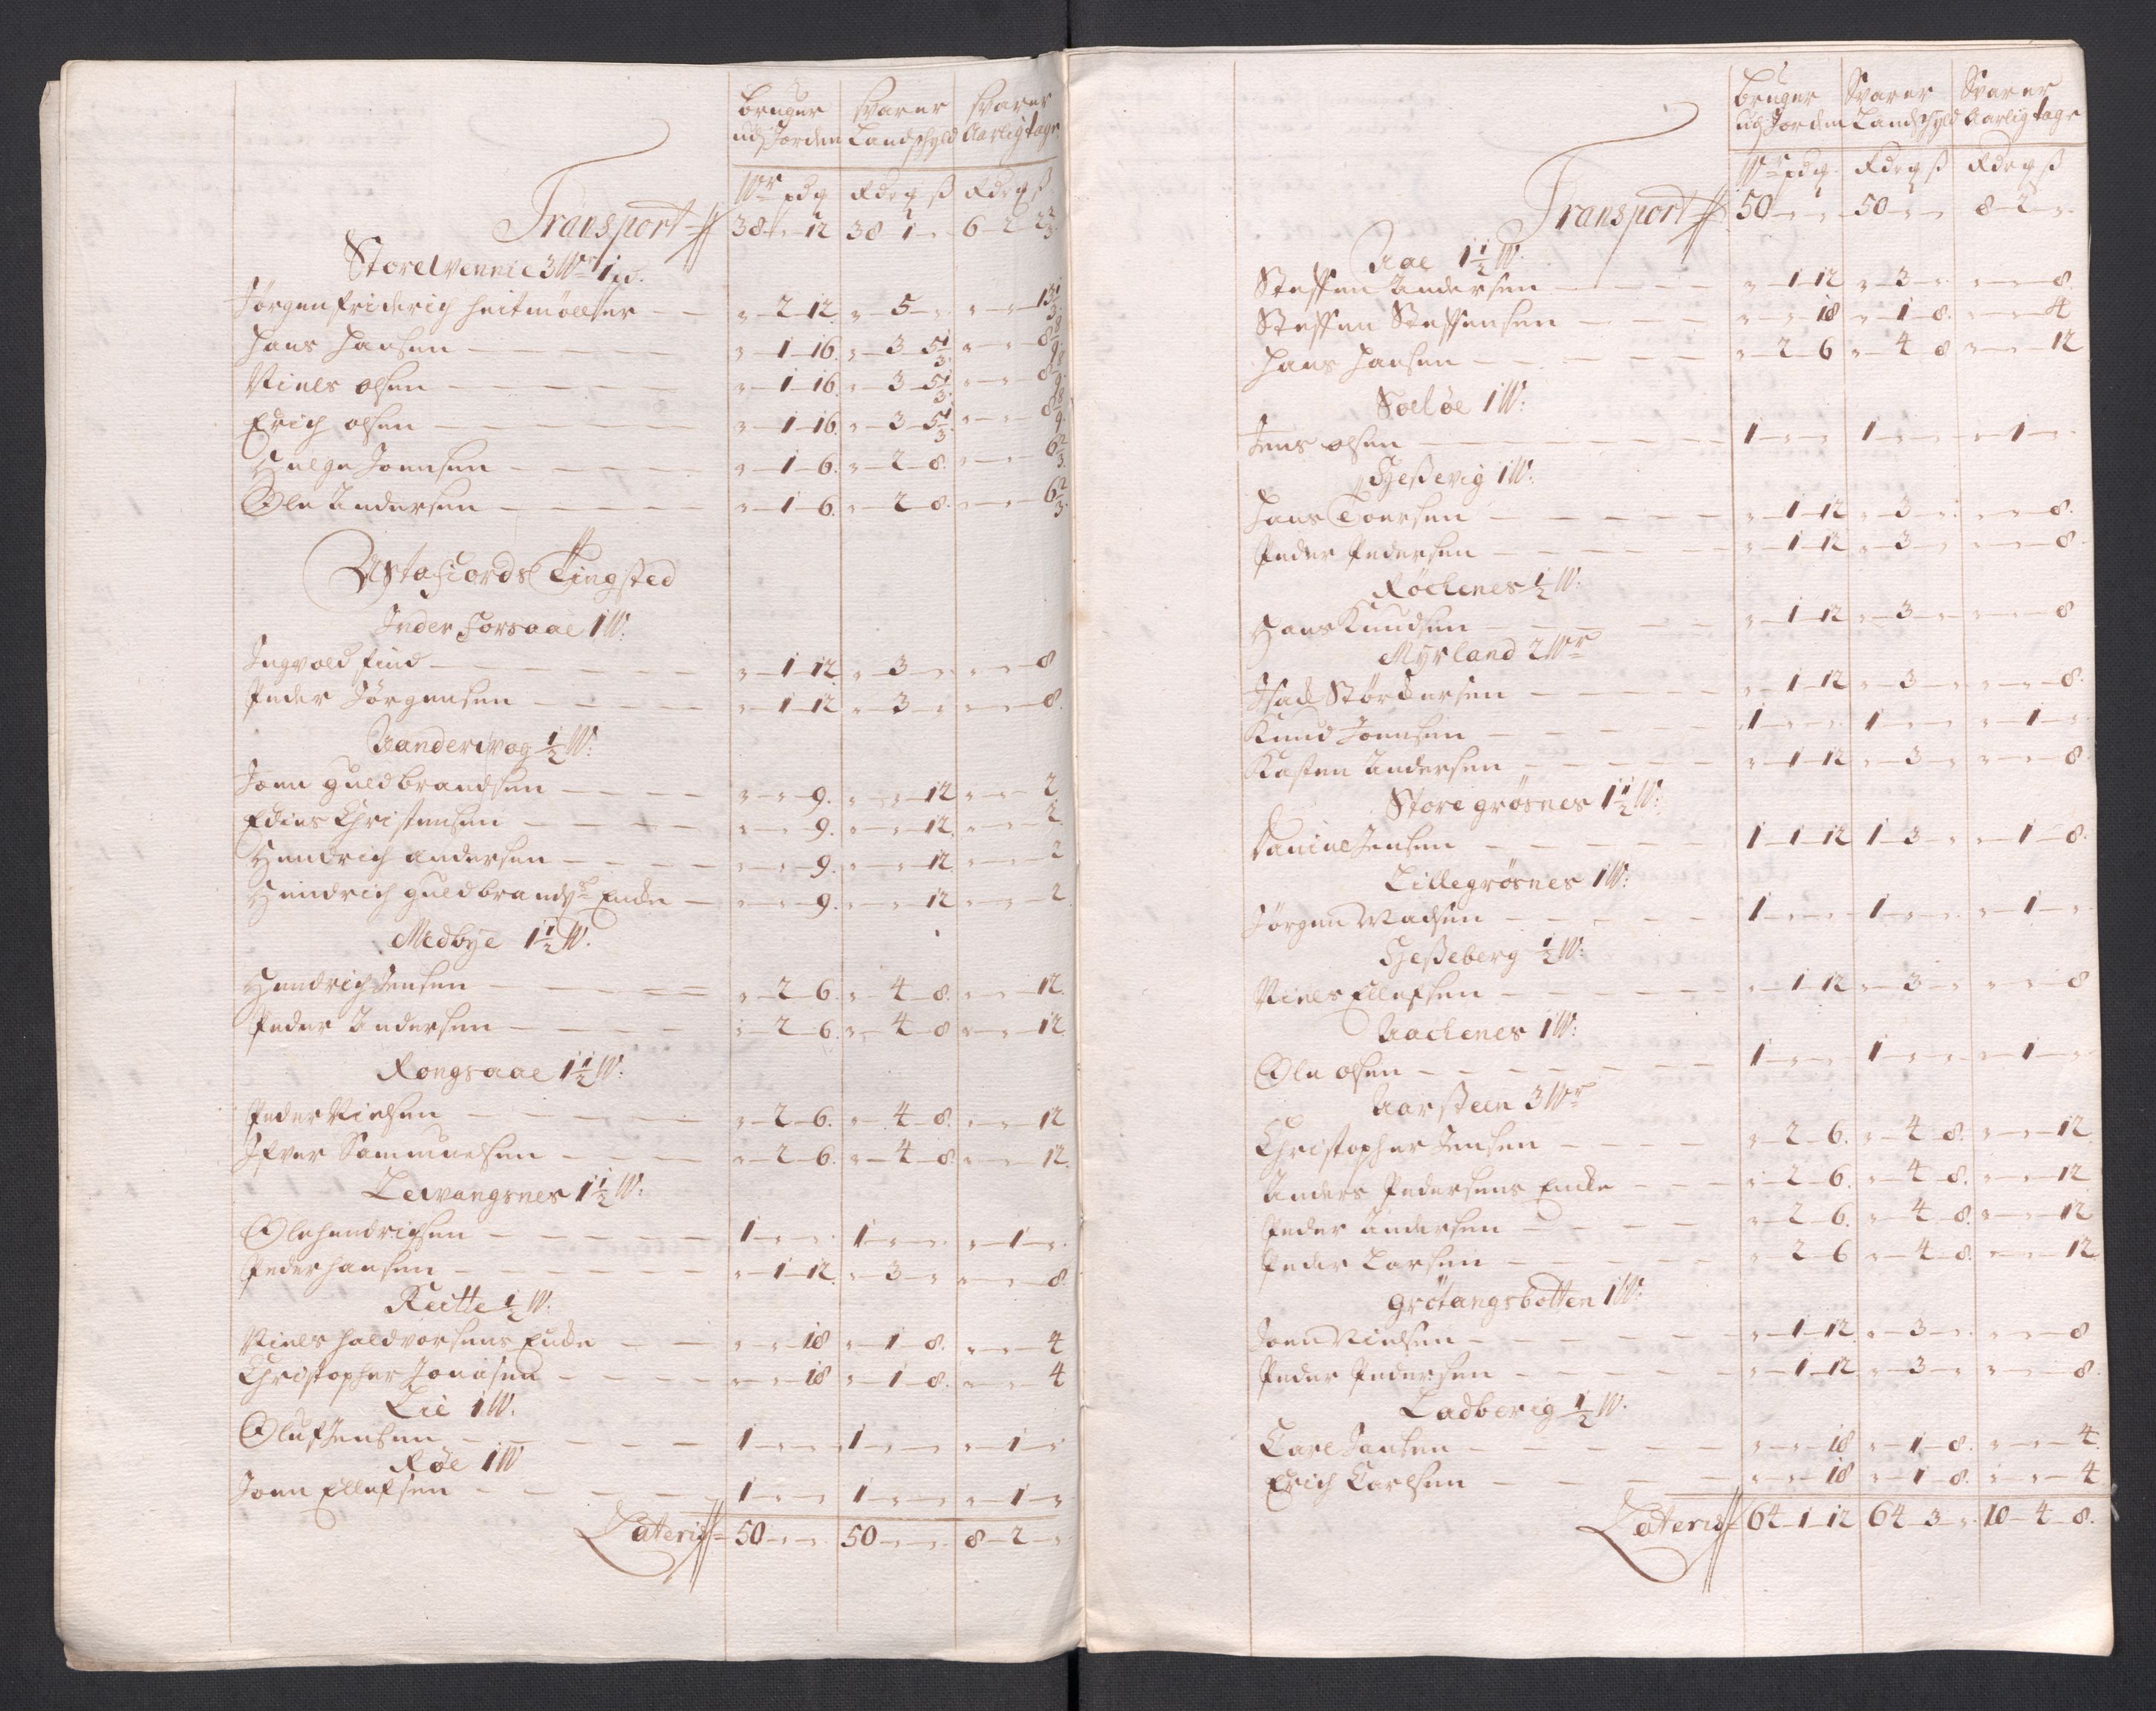 bruger svarer svarer
ud Jorden Landschyld Aarligtage
W pd q Rd q ß Rd q ß
Transport 38 - 12 38 1 - 6 2 2 2/3
Storelvennie 3 W 1 pd.
Jørgen friderich heitmøller - 2 12 - 5 - - - 13 1/3
Hans Hansen - 1 16 - 3 5 1/3 - - 8 8/9
Niels olsen - 1 16 - 3 5 1/3 - - 8 8/9
Erich olsen - 1 16 - 3 5 1/3 - - 8 8/9
Helge Joensen - 1 6 - 2 8 - - 6 2/3
Ole Andersen - 1 6 - 2 8 - - 6 2/3
Astafiords Tingsted
Inder Forsaae 1 W:
Ingvold find - 1 12 - 3 - - - 8
Peder Jørgensen - 1 12 - 3 - - - 8
Aandervog 1/2 W:
Joen guldbrandsen - - 9 - - 12 - - 2
Edies Christensen - - 9 - - 12 - - 2
Hendrich andersen - - 9 - - 12 - - 2
Hendrich guldbrands Encke - - 9 - - 12 - - 2
Medbye 1 1/2 W.
Hendrich Jensen - 2 6 - 4 8 - - 12
Peder Andersen - 2 6 - 4 8 - - 12
Rongsaae 1 1/2 W:
Peder Nielsen - 2 6 - 4 8 - - 12
Ifver Sammuelsen - 2 6 - 4 8 - - 12
Levangsnes 1 1/2 W:
Ole hendrichsen 1 - - 1 - - - 1 -
Peder hansen - 1 12 - 3 - - - 8
Reitte 1/2 W.
Niels haldvorsens Encke - - 18 - 1 8 - - 4
Christopher Jonasen - - 18 - 1 8 - - 4
Lie 1 W.
Oluf Jensen 1 - - 1 - - - 1 -
Røe 1 W
Joen Ellefsen 1 - - 1 - - - 1 -
Lateris 50 - - 50 - - 8 2 -
bruger Svarer Svarer
ud Jorden Landschyld Aarligtage
W pd q Rd q ß Rd q ß
Transport 50 - - 50 - - 8 2 -
Aae 1 1/2 W:
Steffen Andersen - 1 12 - 3 - - - 8
Steffen Steffensen - - 18 - 1 8 - - 4
Hans Hansen - 2 6 - 4 8 - - 12
Soeløe 1 W:
Jens olsen 1 - - 1 - - - 1 -
Hessevig 1 W:
Hans Toersen - 1 12 - 3 - - - 8
Peder Pedersen - 1 12 - 3 - - - 8
Røchenes 1/2 W:
Hans Knudsen - 1 12 - 3 - - - 8
Myrland 2 W
Isach Størckersen - 1 12 - 3 - - - 8
Knud Joensen 1 - - 1 - - - 1 -
Kasten Andersen - 1 12 - 3 - - - 8
Store grøsnes 1 1/2 W:
Daniel Jensen 1 1 12 1 3 - - 1 8
Lillegrøsnes 1 W:
Jørgen Madsen 1 - - 1 - - - 1 -
Hesseberg 1/2 W:
Niels Ellefsen - 1 12 - 3 - - - 8
Aachenes 1 W:
Ole olsen 1 - - 1 - - - 1 -
Aarsteen 3 W
Christopher Jensen - 2 6 - 4 8 - - 12
Anders Pedersens Encke - 2 6 - 4 8 - - 12
Peder Andersen - 2 6 - 4 8 - - 12
Peder Larsen - 2 6 - 4 8 - - 12
Grøtangsbotten 1 W:
Joen Nielsen - 1 12 - 3 - - - 8
Peder Pedersen - 1 12 - 3 - - - 8
Ladberig 1/2 W.
Carl Jansen - - 18 - 1 8 - - 4
Erich Carlsen - - 18 - 1 8 - - 4
Lateris 64 1 12 64 3 - 10 4 8